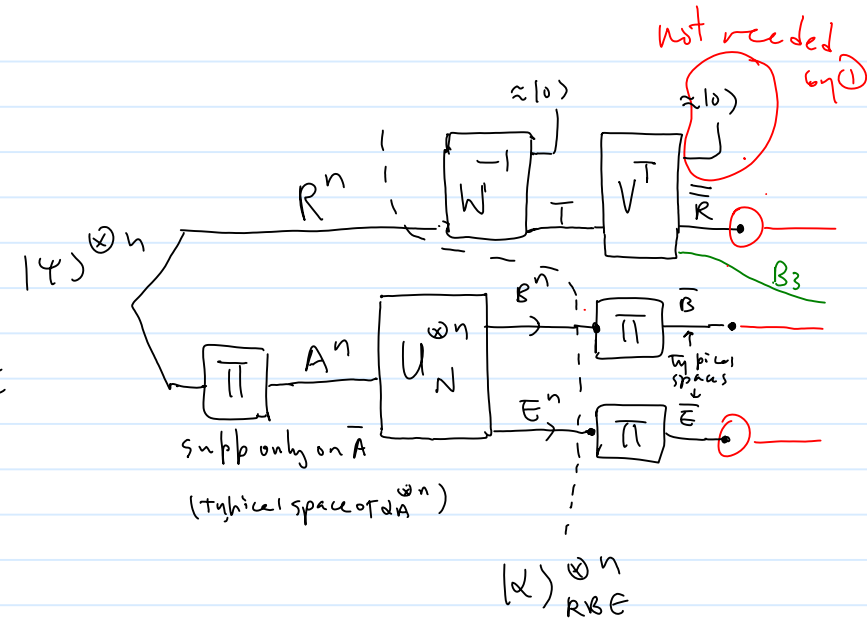 not needed
by ①
≈|0⟩
≈|0⟩
R^n
W^{-1}
T
V^T
R̿
|ψ⟩^{⊗n}
B_3
B^n
Π
B̄
Π
A^n
U_N^{⊗n}
typical
spaces
E^n
Π
Ē
supp only on Ā
(typical space of α_A^{⊗n})
|α⟩^{⊗n}_{RBE}